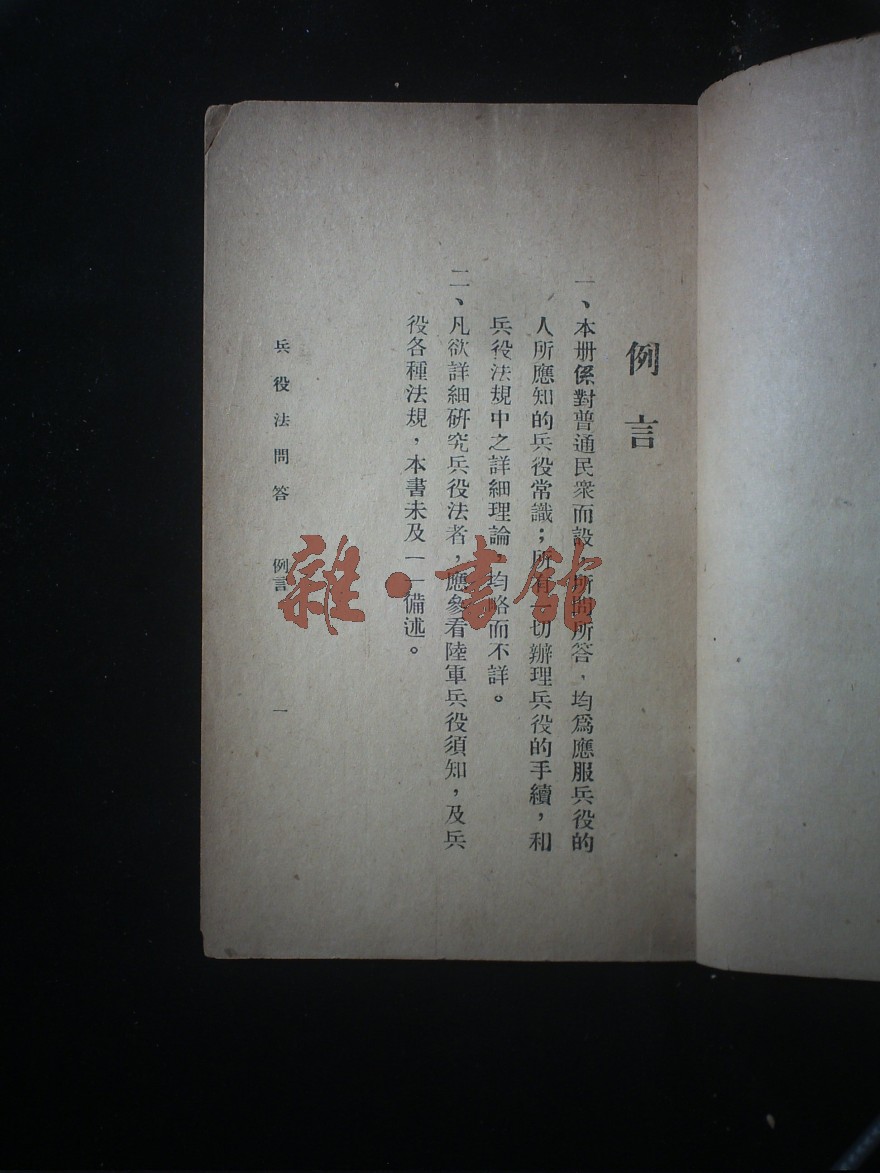 例言
一、本册係對普通民衆而設，所問所答，均爲應服兵役的
人所應知的兵役常識；所有一切辦理兵役的手續，和
兵役法規中之詳細理論，均略而不詳。
二、凡欲詳細研究兵役法者，應參看陸軍兵役須知，及兵
役各種法規，本書未及一一備述。
兵役法問答 例言 一
雜·書館